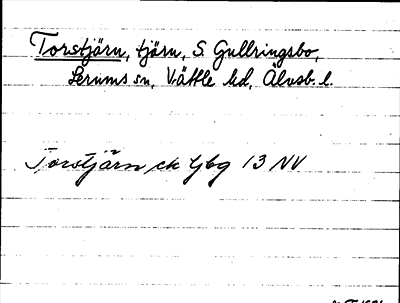 Torstjärn, tjärn, S. Gullringsbo,
Lerums sn, Vättle hd, Älvsb. l.
Torstjärn ek Gbg 13 NV